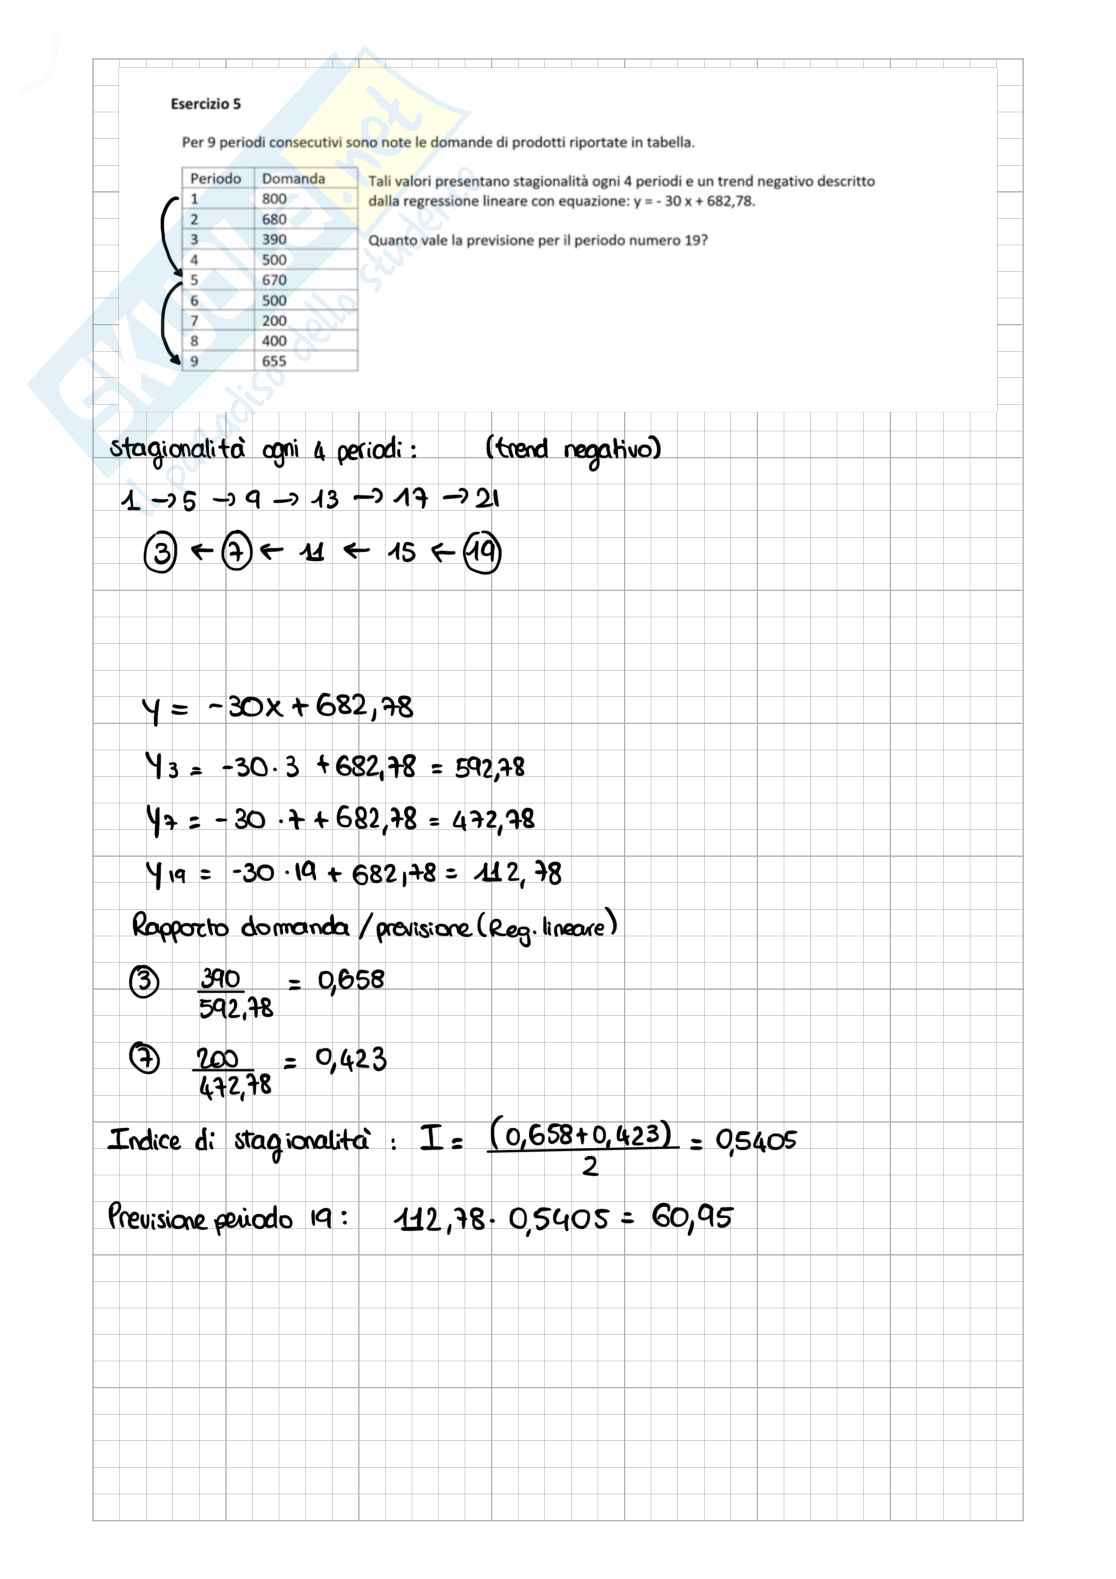 Esercizio 5
Per 9 periodi consecutivi sono note le domande di prodotti riportate in tabella.
Periodo Domanda
1 800
2 680
3 390
4 500
5 670
6 500
7 200
8 400
9 655
Tali valori presentano stagionalità ogni 4 periodi e un trend negativo descritto
dalla regressione lineare con equazione: y = - 30 x + 682,78.
Quanto vale la previsione per il periodo numero 19?
SKUOLA.net
il paradiso dello studente
stagionalità ogni 4 periodi : (trend negativo)
1 → 5 → 9 → 13 → 17 → 21
3 ← 7 ← 11 ← 15 ← 19
y = -30x + 682,78
y3 = -30·3 + 682,78 = 592,78
y7 = -30·7 + 682,78 = 472,78
y19 = -30·19 + 682,78 = 112,78
Rapporto domanda / previsione (Reg. lineare)
3 390/592,78 = 0,658
7 200/472,78 = 0,423
Indice di stagionalità : I = (0,658+0,423)/2 = 0,5405
Previsione periodo 19 : 112,78 · 0,5405 = 60,95